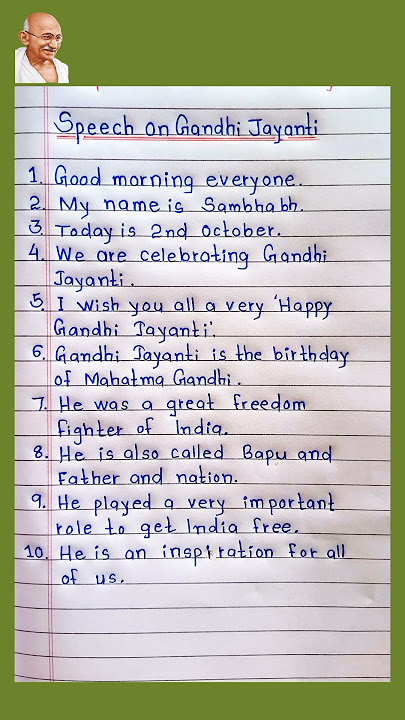 Speech on Gandhi Jayanti
1. Good morning everyone.
2. My name is Sambhabh.
3. Today is 2nd October.
4. We are celebrating Gandhi
Jayanti.
5. I wish you all a very 'Happy
Gandhi Jayanti'.
6. Gandhi Jayanti is the birthday
of Mahatma Gandhi.
7. He was a great freedom
fighter of India.
8. He is also called Bapu and
Father and nation.
9. He played a very important
role to get India free.
10. He is an inspiration for all
of us.